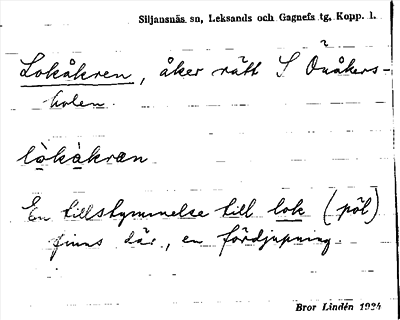 Siljansnäs sn, Leksands och Gagnefs tg, Kopp. l.
Lokåkren, åker rätt S Önåkers-
holen.
lòkàkran
En tillstymmelse till lok (pöl)
finns där, en fördjupning.
Bror Lindén 1934